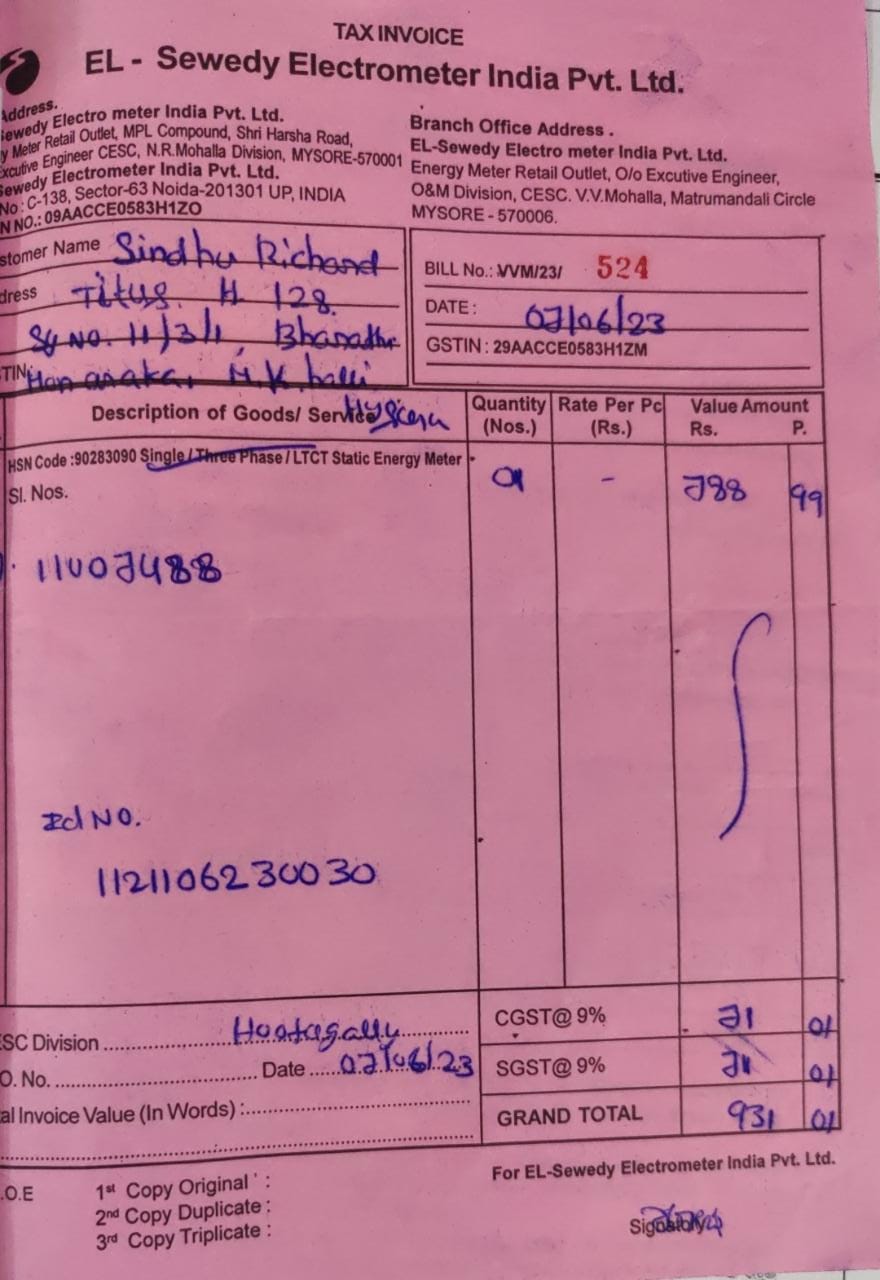 TAX INVOICE
EL - Sewedy Electrometer India Pvt. Ltd.
Address.
Sewedy Electro meter India Pvt. Ltd.
y Meter Retail Outlet, MPL Compound, Shri Harsha Road,
xcutive Engineer CESC, N.R.Mohalla Division, MYSORE-570001
Sewedy Electrometer India Pvt. Ltd.
No : C-138, Sector-63 Noida-201301 UP, INDIA
N NO.: 09AACCE0583H1ZO
Branch Office Address .
EL-Sewedy Electro meter India Pvt. Ltd.
Energy Meter Retail Outlet, O/o Excutive Engineer,
O&M Division, CESC. V.V.Mohalla, Matrumandali Circle
MYSORE - 570006.
stomer Name Sindhu Richard
dress Titus. H 128.
Sy No. 11/3/1, Bharathr
TIN
BILL No.: VVM/23/ 524
DATE : 07/06/23
GSTIN : 29AACCE0583H1ZM
Description of Goods/ Service
Quantity (Nos.) Rate Per Pc (Rs.) Value Amount Rs. P.
HSN Code :90283090 Single / Three Phase / LTCT Static Energy Meter
01 - 788 99
Sl. Nos.
11007488
Id NO.
1121106230030
SC Division Hootagally
O. No. Date 07/06/23
al Invoice Value (In Words) :
CGST@ 9% 71 01
SGST@ 9% 71 01
GRAND TOTAL 931 01
For EL-Sewedy Electrometer India Pvt. Ltd.
.O.E
1st Copy Original :
2nd Copy Duplicate :
3rd Copy Triplicate :
Signatory